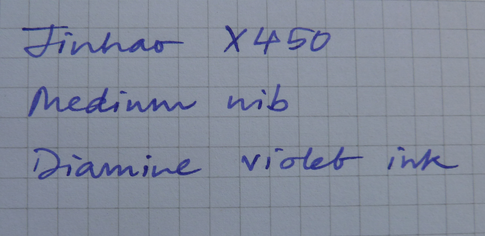 Jinhao X450
Medium nib
Diamine violet ink